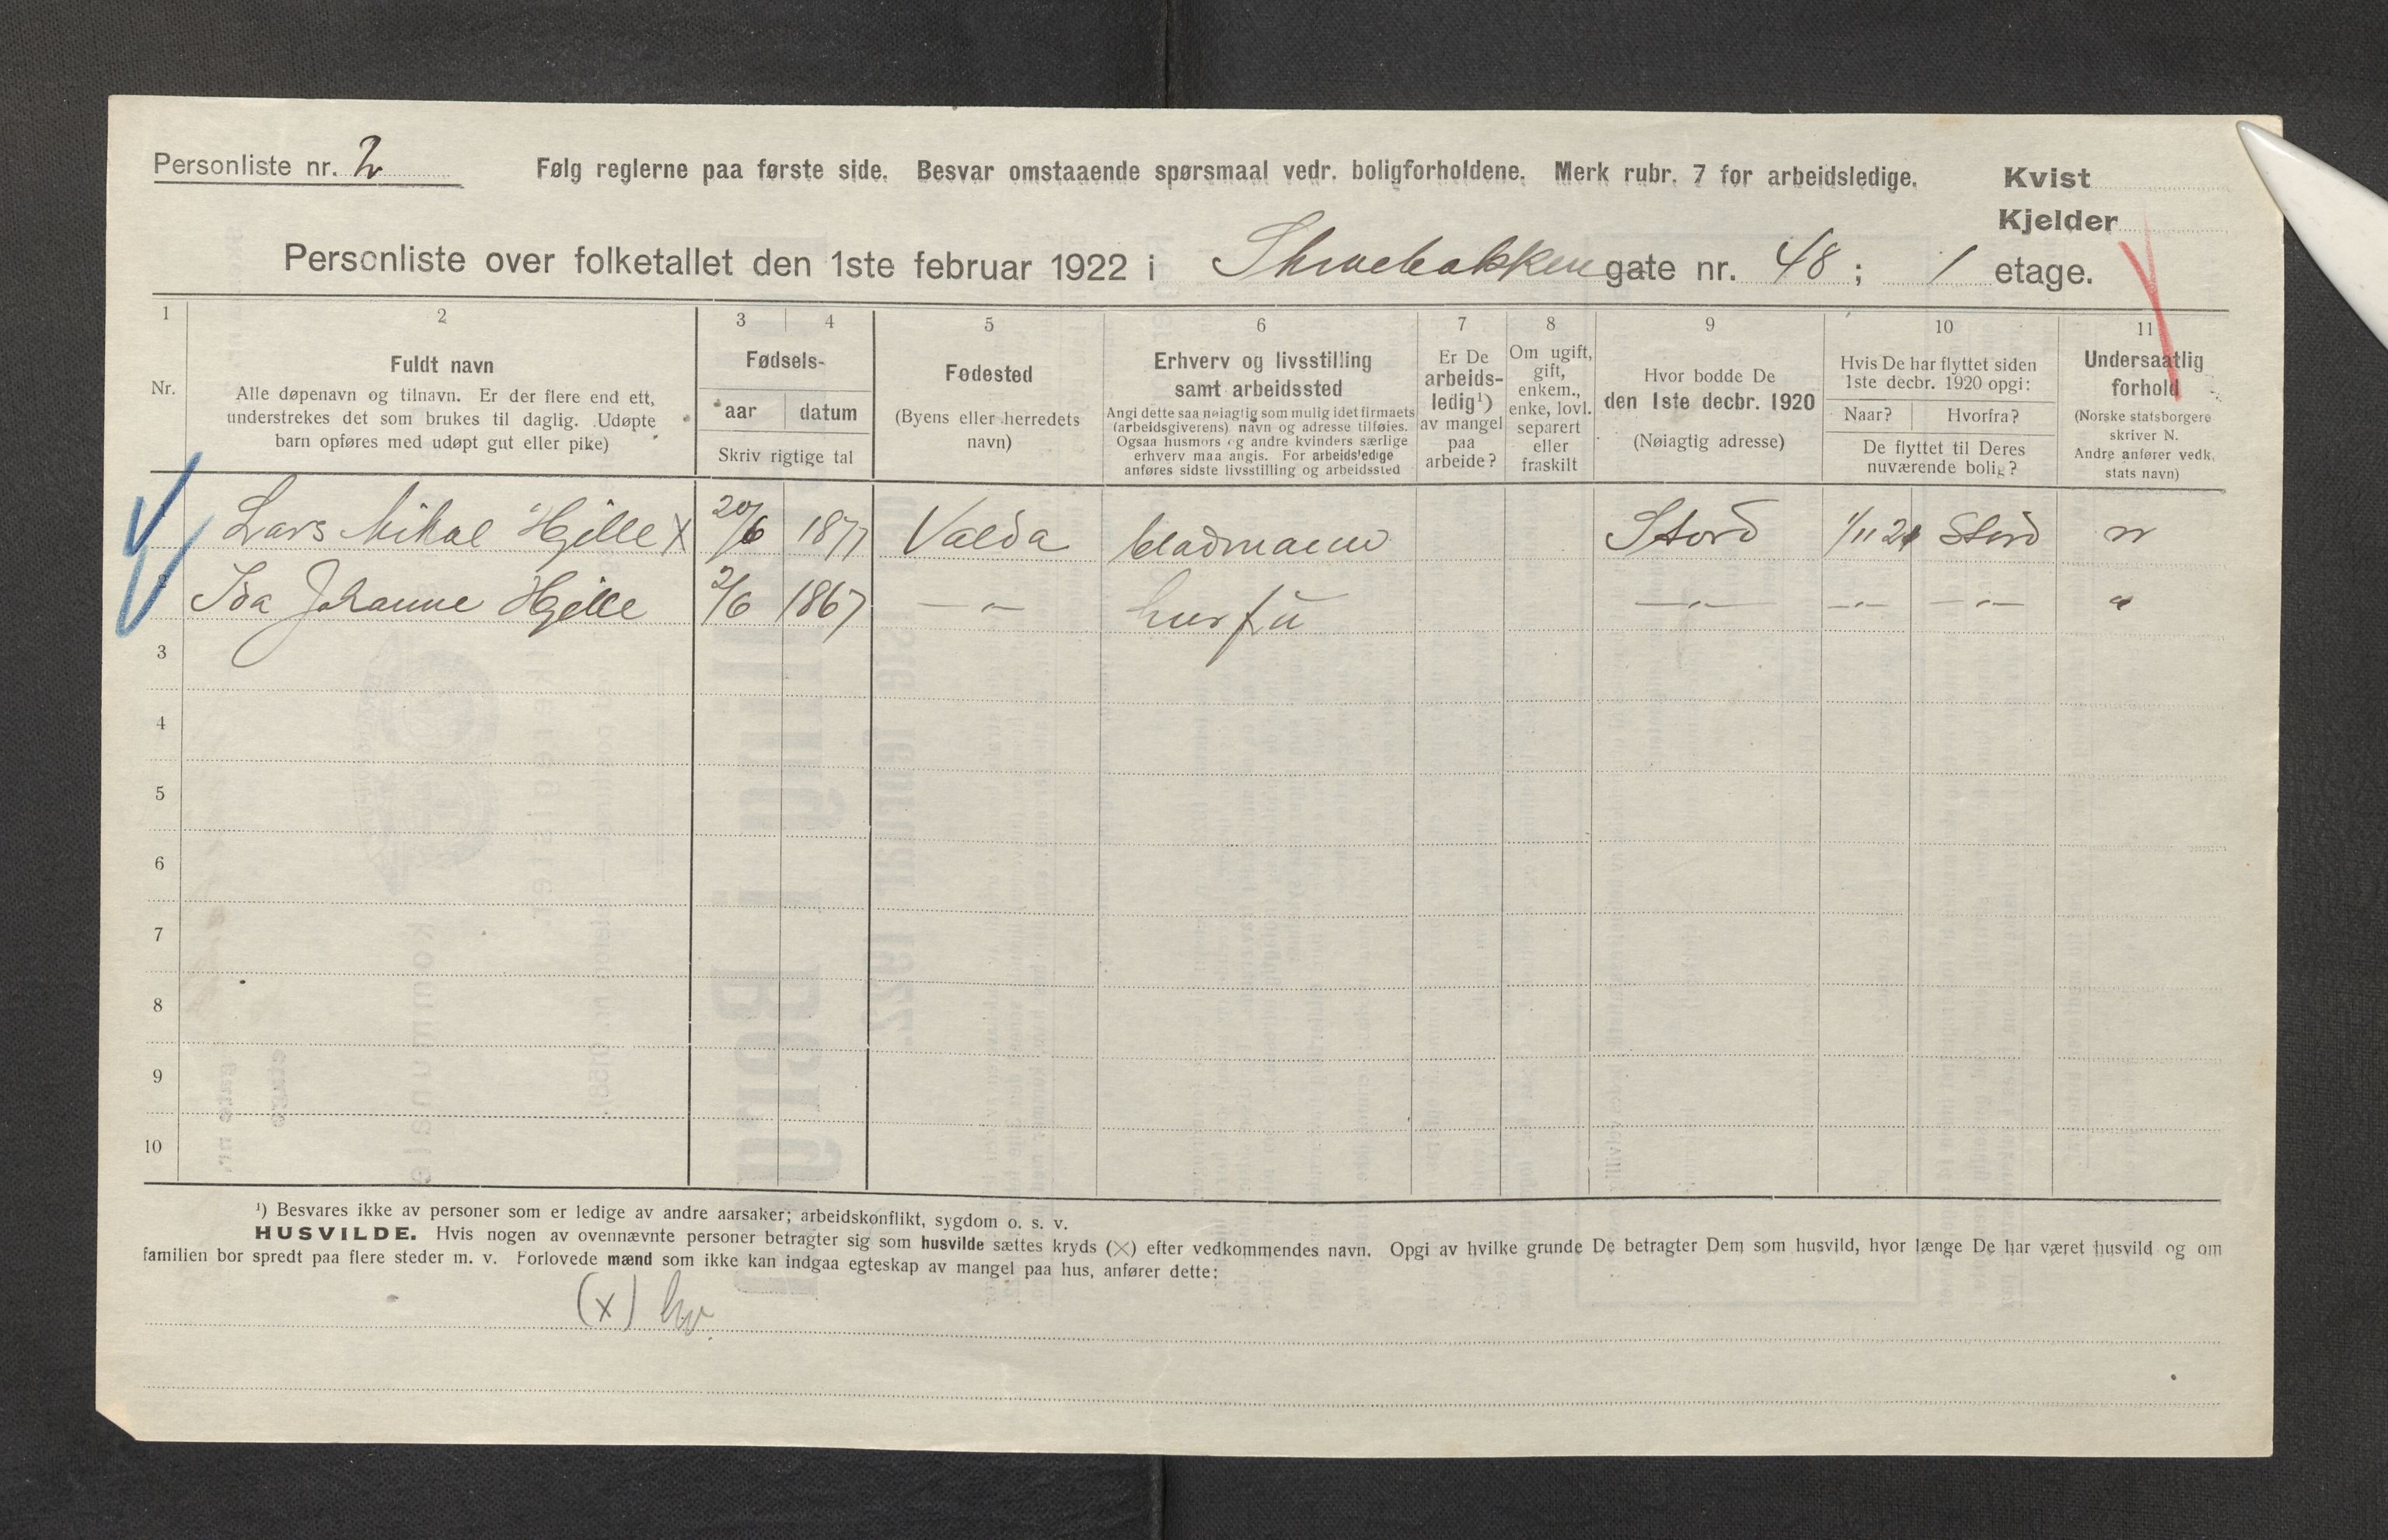 Personliste nr. 2
Følg reglerne paa første side. Besvar omstaaende spørsmaal vedr. boligforholdene. Merk rubr. 7 for arbeidsledige.
Kvist
Kjelder
Personliste over folketallet den 1ste februar 1922 i Skivebakken gate nr. 48; 1 etage.
1 2 3 4 5 6 7 8 9 10 11
Nr.
Fuldt navn
Alle døpenavn og tilnavn. Er der flere end ett,
understrekes det som brukes til daglig. Udøpte
barn opføres med udøpt gut eller pike)
Fødsels-
aar datum
Skriv rigtige tal
Fødested
(Byens eller herredets
navn)
Erhverv og livsstilling
samt arbeidssted
Angi dette saa nøiagtig som mulig idet firmaets
(arbeidsgiverens) navn og adresse tilføies.
Ogsaa husmors og andre kvinders særlige
erhverv maa angis. For arbeidsledige
anføres sidste livsstilling og arbeidssted
Er De
arbeids-
ledig¹)
av mangel
paa
arbeide?
Om ugift,
gift,
enkem.,
enke, lovl.
separert
eller
fraskilt
Hvor bodde De
den 1ste decbr. 1920
(Nøiagtig adresse)
Hvis De har flyttet siden
1ste decbr. 1920 opgi:
Naar? Hvorfra?
De flyttet til Deres
nuværende bolig?
Undersaatlig
forhold
(Norske statsborgere
skriver N.
Andre anfører vedk.
stats navn)
Lars Mikal Hjelle x 20/6 1877 Valda Stord 1/11 21 Stord n
2 Ida Johanne Hjelle 2/6 1867 — " — husfru — " — — " — — " — "
3
4
5
6
7
8
9
10
¹) Besvares ikke av personer som er ledige av andre aarsaker; arbeidskonflikt, sygdom o. s. v.
HUSVILDE. Hvis nogen av ovennævnte personer betragter sig som husvilde sættes kryds (×) efter vedkommendes navn. Opgi av hvilke grunde De betragter Dem som husvild, hvor længe De har været husvild og om
familien bor spredt paa flere steder m. v. Forlovede mænd som ikke kan indgaa egteskap av mangel paa hus, anfører dette:
(x) hv.